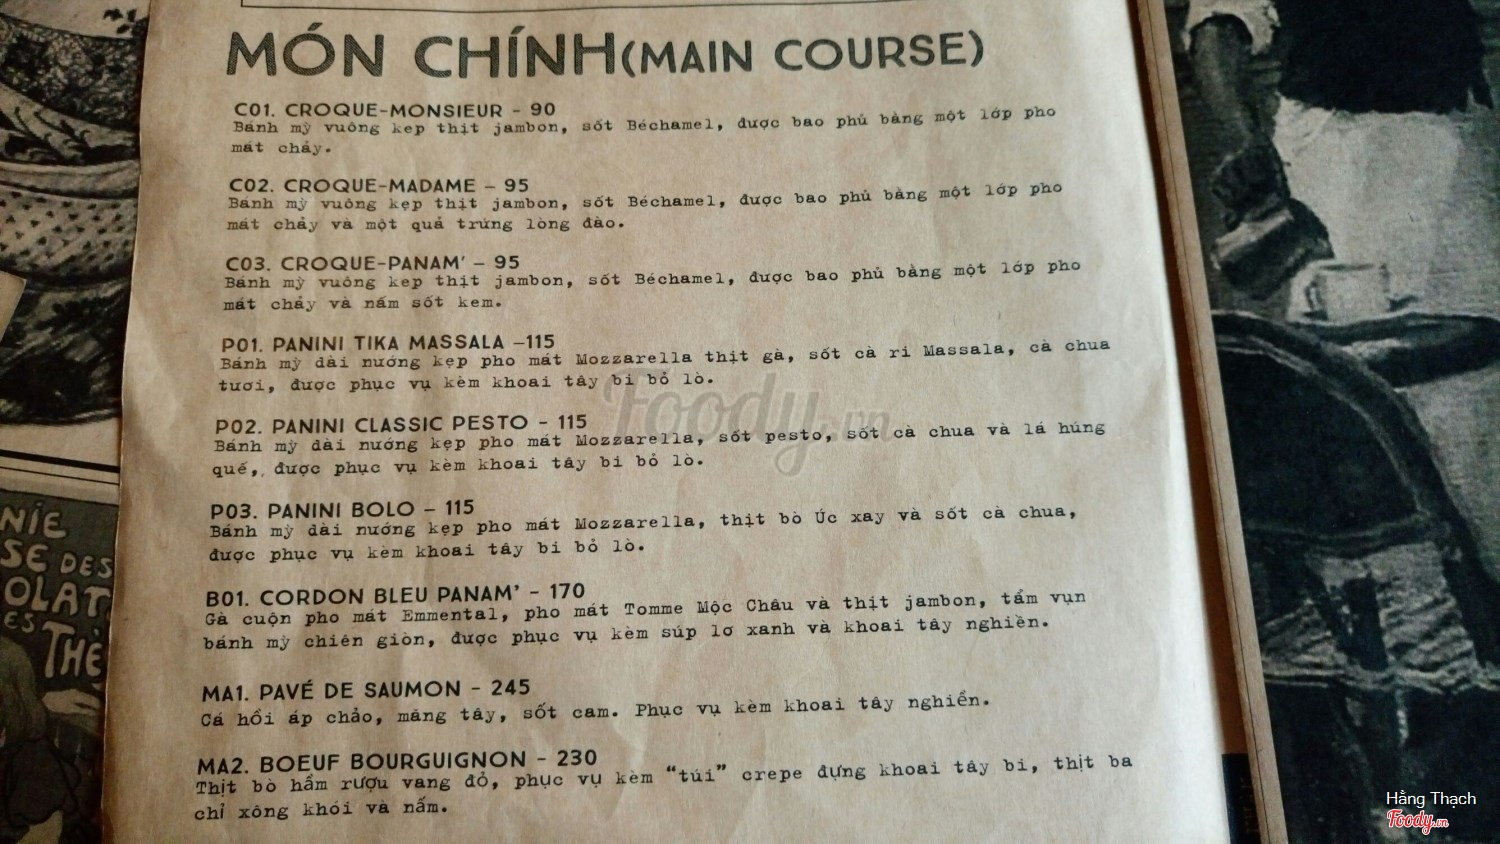 MÓN CHÍNH(MAIN COURSE)
C01. CROQUE-MONSIEUR - 90
Bánh mỳ vuông kẹp thịt jambon, sốt Béchamel, được bao phủ bằng một lớp pho
mát chảy.
C02. CROQUE-MADAME - 95
Bánh mỳ vuông kẹp thịt jambon, sốt Béchamel, được bao phủ bằng một lớp pho
mát chảy và một quả trứng lòng đào.
C03. CROQUE-PANAM' - 95
Bánh mỳ vuông kẹp thịt jambon, sốt Béchamel, được bao phủ bằng một lớp pho
mát chảy và nấm sốt kem.
P01. PANINI TIKA MASSALA -115
Bánh mỳ dài nướng kẹp pho mát Mozzarella thịt gà, sốt cà ri Massala, cà chua
tươi, được phục vụ kèm khoai tây bi bỏ lò.
P02. PANINI CLASSIC PESTO - 115
Bánh mỳ dài nướng kẹp pho mát Mozzarella, sốt pesto, sốt cà chua và lá húng
quế, được phục vụ kèm khoai tây bi bỏ lò.
P03. PANINI BOLO - 115
Bánh mỳ dài nướng kẹp pho mát Mozzarella, thịt bò Úc xay và sốt cà chua,
được phục vụ kèm khoai tây bi bỏ lò.
B01. CORDON BLEU PANAM' - 170
Gà cuộn pho mát Emmental, pho mát Tomme Mộc Châu và thịt jambon, tẩm vụn
bánh mỳ chiên giòn, được phục vụ kèm súp lơ xanh và khoai tây nghiền.
MA1. PAVÉ DE SAUMON - 245
Cá hồi áp chảo, măng tây, sốt cam. Phục vụ kèm khoai tây nghiền.
MA2. BOEUF BOURGUIGNON - 230
Thịt bò hầm rượu vang đỏ, phục vụ kèm "túi" crepe đựng khoai tây bi, thịt ba
chỉ xông khói và nấm.
NIE
SE DES
OLAT
ES
THÉ
Foody.vn
Hằng Thạch
Foody.vn